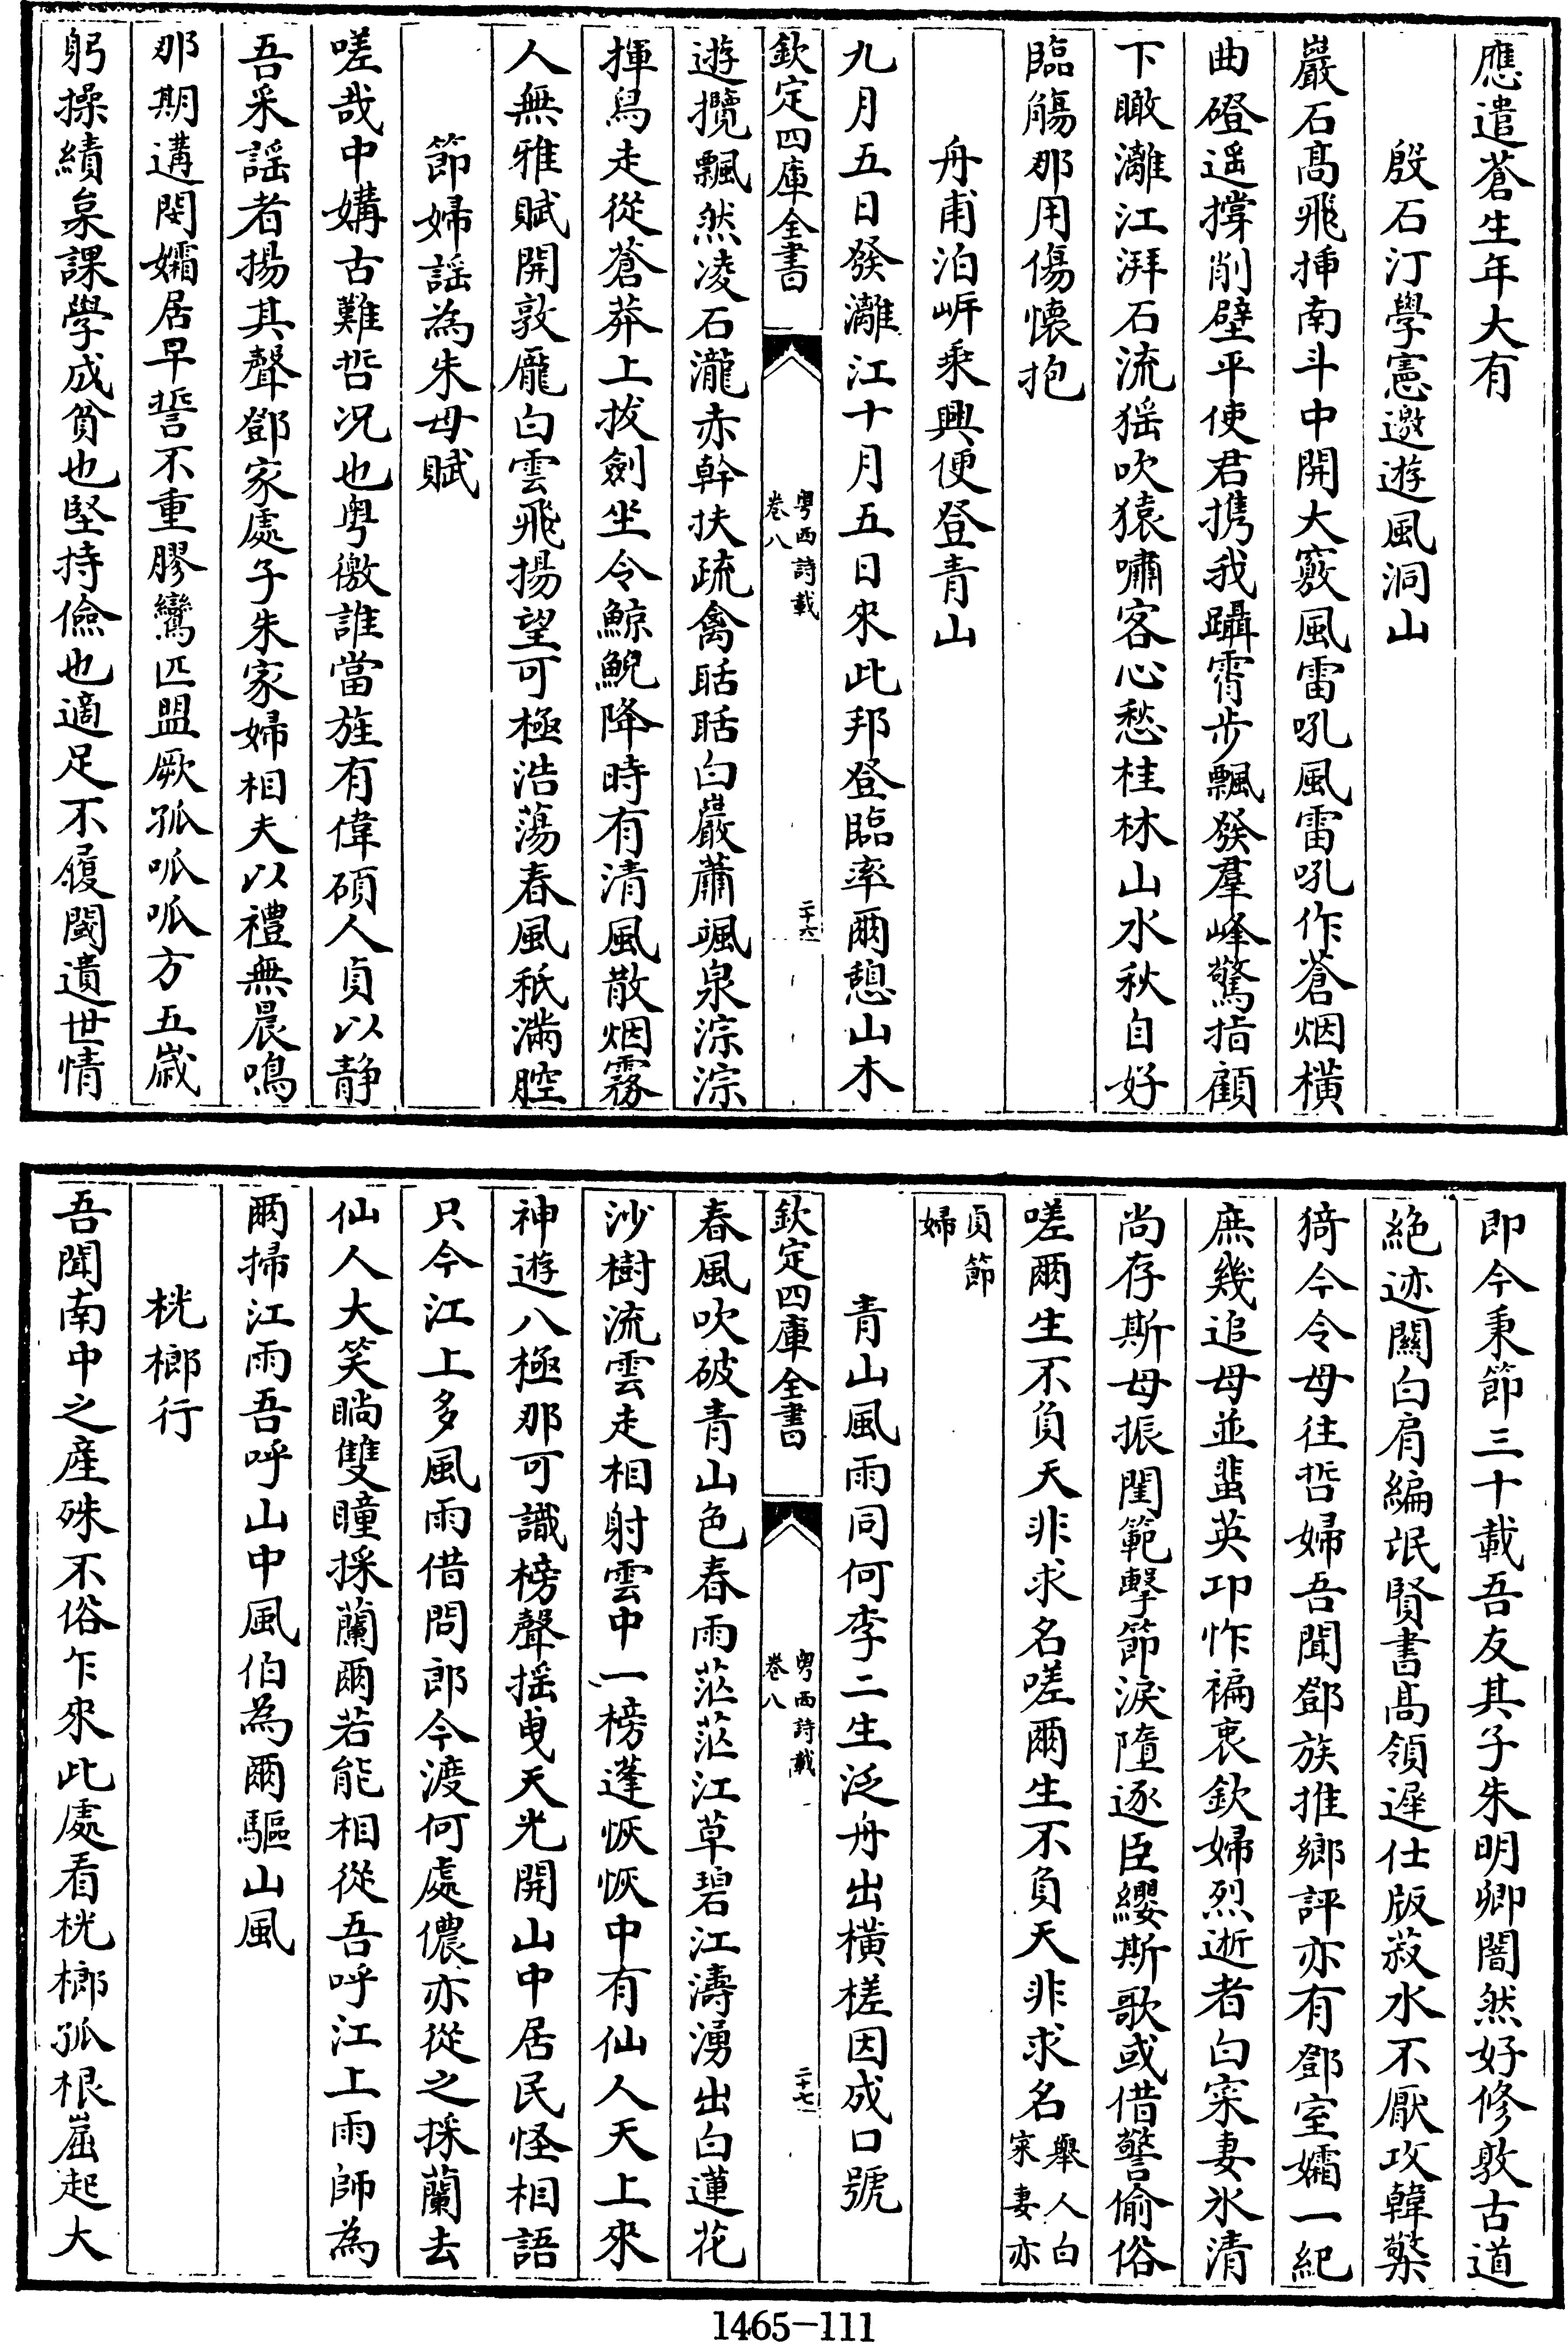 應遣蒼生年大有
殷石汀學憲邀遊風洞山
巖石髙飛揷南斗中開大竅風雷吼風雷吼作蒼烟橫
曲磴遥撐削壁平使君携我躡霄步飄發羣峰驚指顧
下瞰灕江湃石流猺吹猿嘯客心愁桂林山水秋自好
臨觴那用傷懐抱
舟甫泊㟁乘興便登青山
九月五日發灕江十月五日來此邦登臨率爾憩山木
欽定四庫全書
粤西詩載
卷八
二十六
遊攬飄然凌石瀧赤幹扶疏禽聒聒白巖蕭颯泉淙淙
揮鳥走從蒼莽上拔劍坐令鯨鯢降時有清風散烟霧
人無雅賦開敦厖白雲飛揚望可極浩蕩春風秖滿腔
節婦謡為朱母賦
嗟哉中媾古難哲况也粤徼誰當旌有偉碩人貞以靜
吾采謡者揚其聲鄧家處子朱家婦相夫以禮無晨鳴
那期遘閔孀居早誓不重膠鸞匹盟厥孤呱呱方五歳
躬操績枲課學成貧也堅持儉也適足不履閾遺世情
即今秉節三十載吾友其子朱明卿闇然好修敦古道
絶迹闗白肩編氓賢書髙領遲仕版菽水不厭攻韓檠
猗今令母往哲婦吾聞鄧族推鄉評亦有鄧室孀一紀
庶幾追母並蜚英卭怍褊衷欽婦烈逝者白寀妻氷清
尚存斯母振閨範擊節淚墮逐臣纓斯歌或借警偷俗
嗟爾生不負天非求名嗟爾生不負天非求名舉人白
寀妻亦
貞節
婦
青山風雨同何李二生泛舟出橫槎因成口號
欽定四庫全書
粤西詩載
卷八
二十七
春風吹破青山色春雨茫茫江草碧江濤湧出白蓮花
沙樹流雲走相射雲中一榜蓬恢恢中有仙人天上來
神遊八極那可識榜聲摇曵天光開山中居民怪相語
只今江上多風雨借問郎今渡何處儂亦從之採蘭去
仙人大笑瞬雙瞳採蘭爾若能相從吾呼江上雨師為
爾掃江雨吾呼山中風伯為爾驅山風
桄榔行
吾聞南中之産殊不俗乍來此處看桄榔孤根崫起大
1465-111